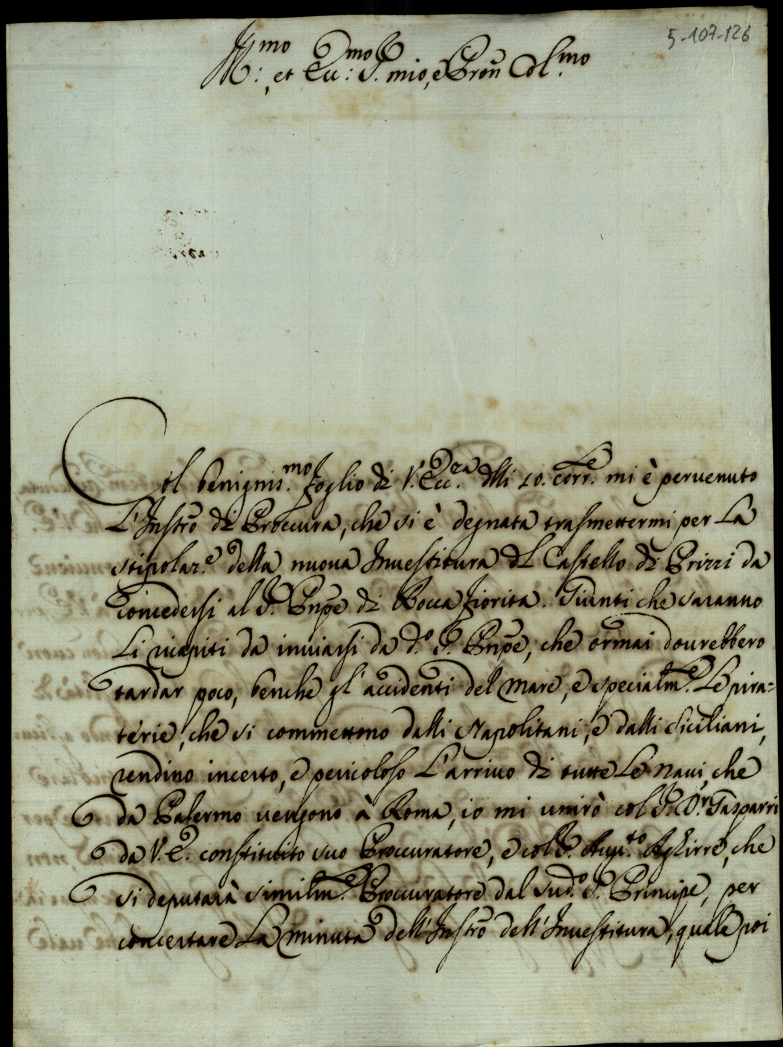 5-107-126
Ill:mo, et Ecc:mo S. mio, e Pron Col:mo
Col benignis.mo foglio di V. Ecc.za dlli 10. Corr.e mi è pervenuto
L'Instro di Procura, che si è degnata trasmettermi per La
stipolaz.e della nuova Investitura dl Castello di Prizzi da
concedersi al S. Pnpe di Rocca fiorita. Giunti che saranno
Li ricapiti da inviarsi da d.o S. Pnpe, che ormai dovrebbero
tardar poco, benche gl'accidenti del mare, e specialm.e Le pira=
terie, che si commettono dalli Napolitani, e dalli Siciliani,
rendino incerto, e pericoloso L'arrivo di tutte Le navi, che
da Palermo vengono à Roma, io mi unirò col S. D.r Gasparri
da V. E. constituito suo Proccuratore, e col S. Agirre, che
si deputarà similm.e Proccuratore dal Sud.o S. Principe, per
concertare La minuta dell'Instro dell'Investitura, quale poi